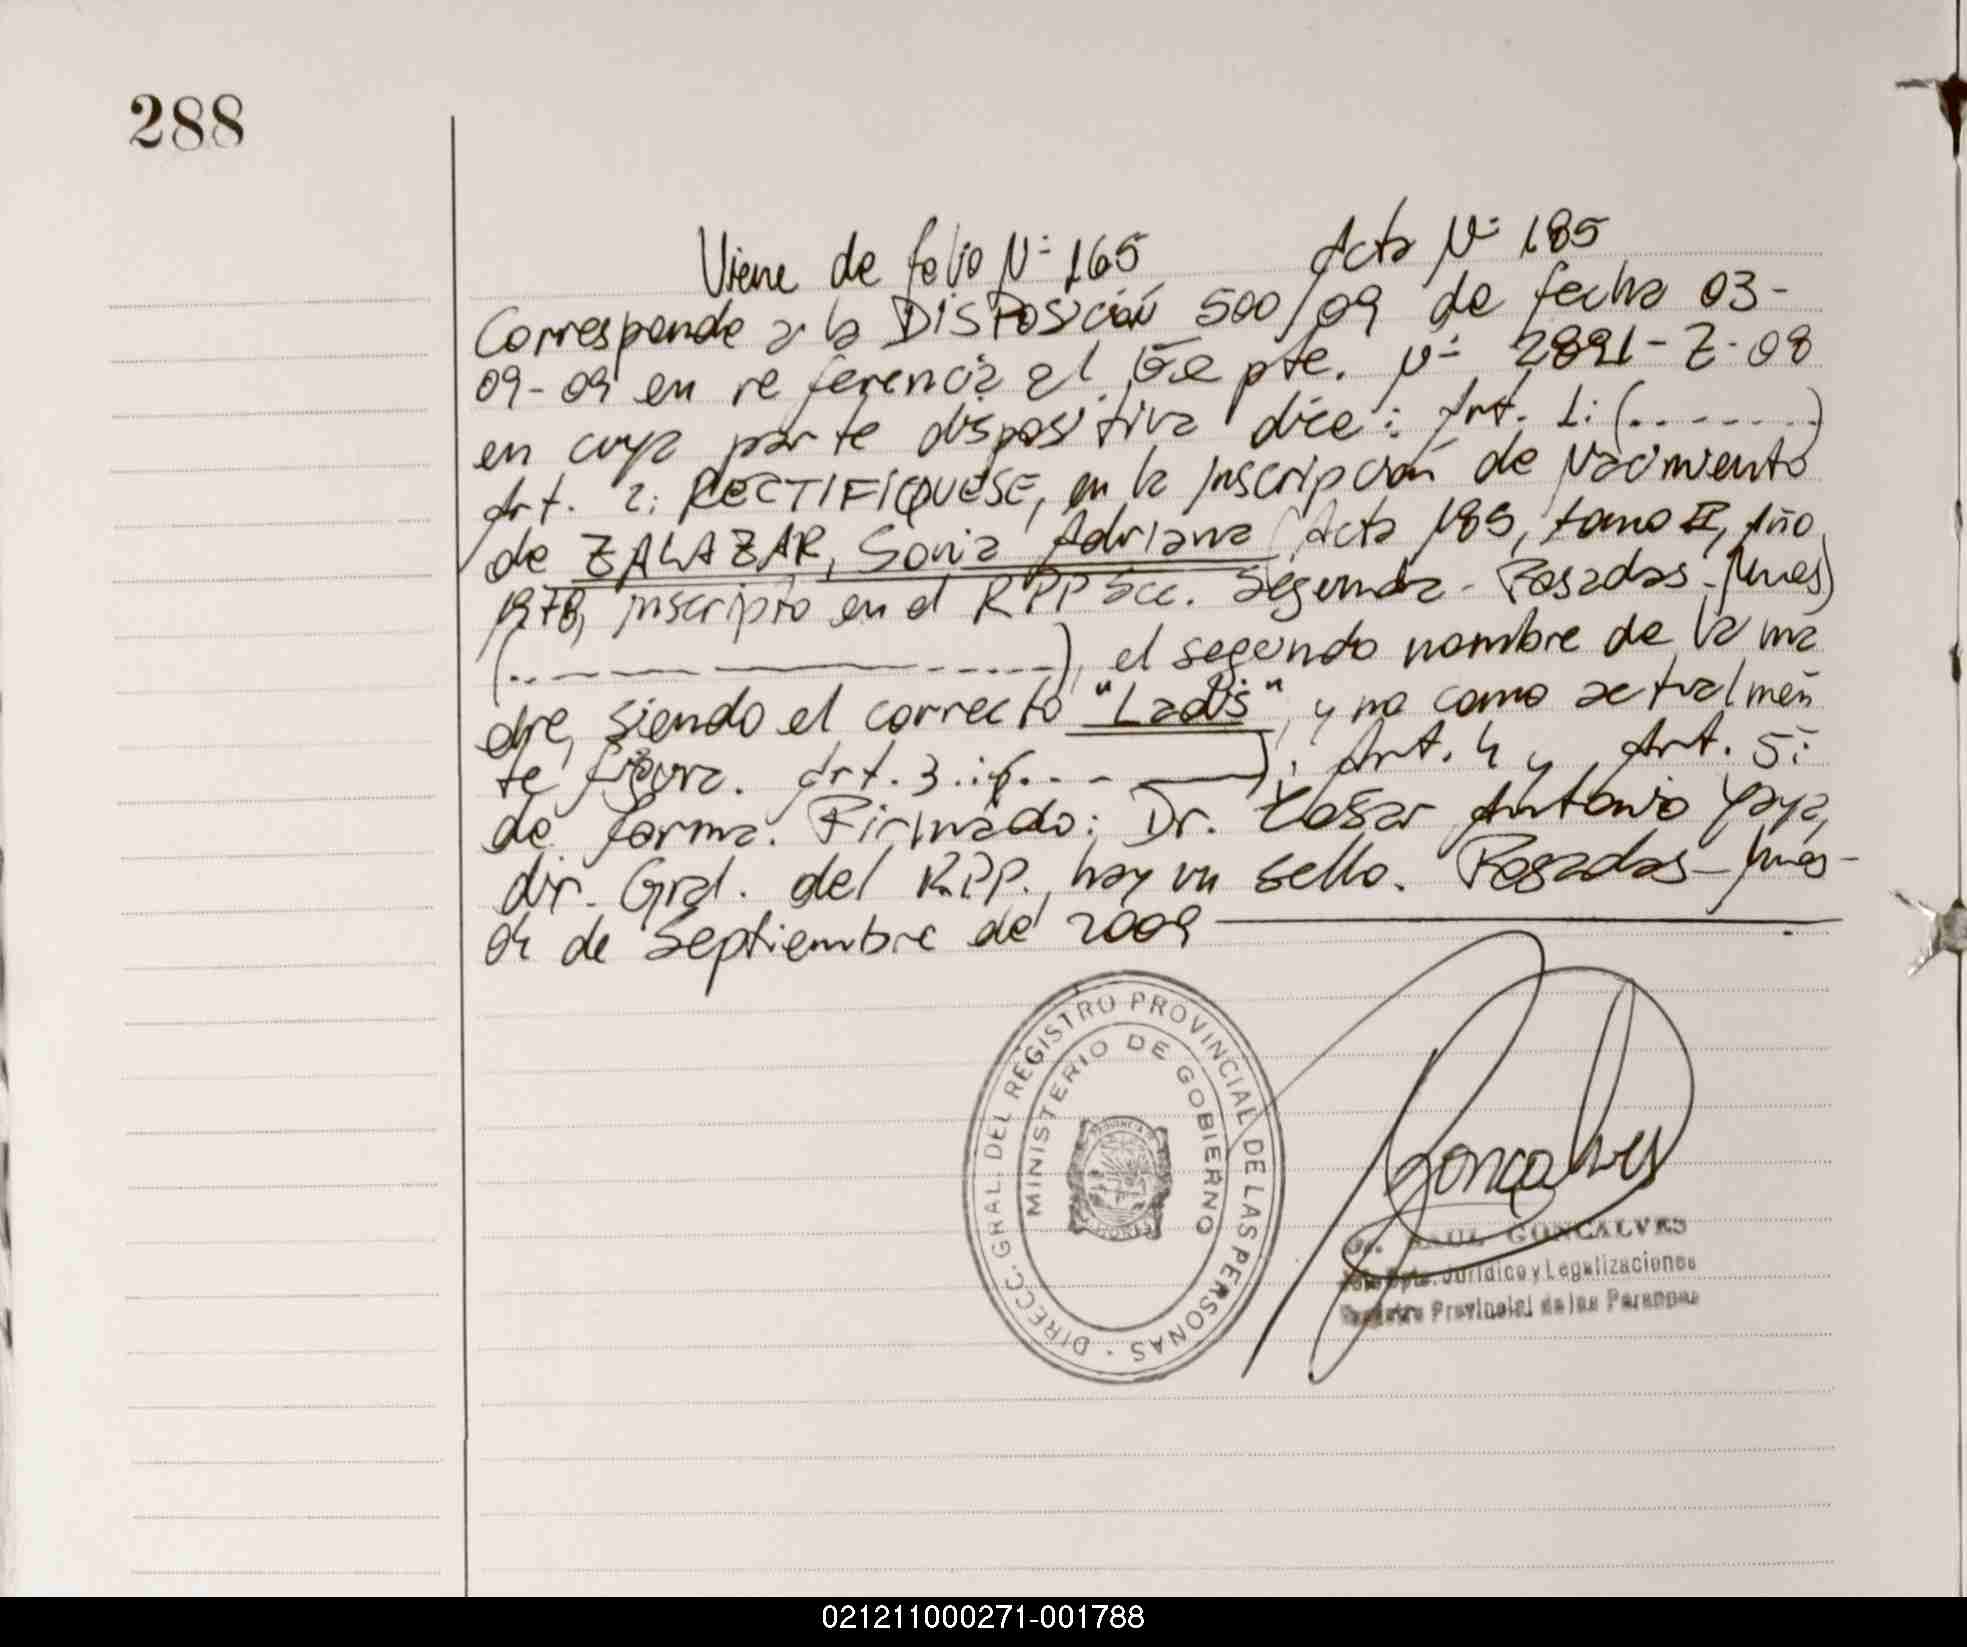 288
Viene de folio Nº 165 Acta Nº 185
Corresponde a la DISPOSICIÓN 500/09 de fecha 03-
09-09 en referencia al Expte. Nº 2891-Z-08
en cuya parte dispositiva dice: Art. 1: (.......)
Art. 2: RECTIFIQUESE, en la inscripción de Nacimiento
de ZALAZAR, Sonia Adriana (Acta 185, tomo II, Año
1978, inscripto en el RPP Scc. Segunda - Posadas - Mnes)
(..---------....), el segundo nombre de la ma
dre, siendo el correcto "Ladis", y no como actualmen
te figura. Art. 3.: (...- ——). Art. 4 y Art. 5:
de forma. Firmado: Dr. César Antonio Yaya,
dir. Gral. del R.P.P., hay un sello. Posadas - Mnes -
04 de Septiembre de 2009
DIRECC. GRAL. DEL REGISTRO PROVINCIAL DE LAS PERSONAS
MINISTERIO DE GOBIERNO
PROVINCIA DE
MISIONES
Goncalves
RAUL GONCALVES
Jefe Dpto. Jurídico y Legalizaciones
Registro Provincial de las Personas
021211000271-001788